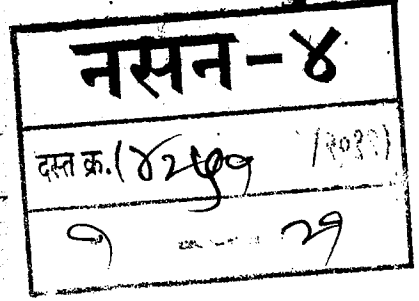 नसन-४
दस्त क्र.(४२५१ /२०११)
१ - २१